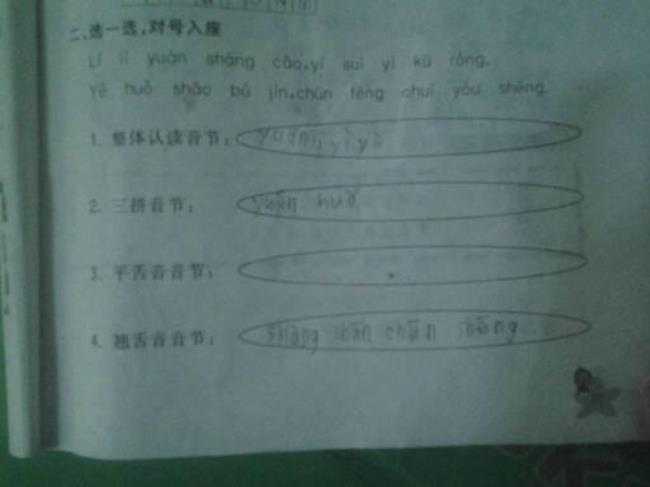 二、选一选，对号入座
Lí lí yuán shàng cǎo,yí suì yì kū róng.
Yě huǒ shāo bú jìn,chūn fēng chuī yòu shēng.
1. 整体认读音节：yuán yí yì yě
2. 三拼音节：yuān huǒ
3. 平舌音音节：
4. 翘舌音音节：shàng shāo chūn shēng